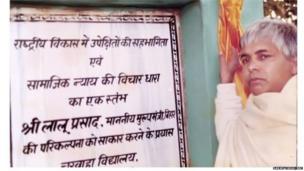 राष्ट्रीय विकास में उपेक्षितों की सहभागिता
एवं
सामाजिक न्याय की विचार धारा
का एक स्तंभ
श्री लालू प्रसाद, माननीय मुख्यमंत्री, बिहार
की परिकल्पना को साकार करने के प्रयास
चरवाहा विद्यालय.